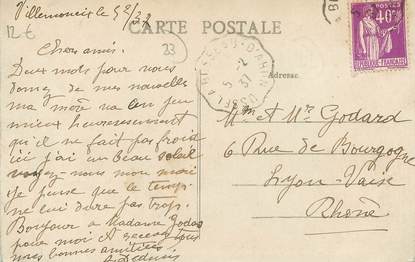 Villemontais le 5 2/37
12€
CARTE POSTALE
23
Chers amis.
Deux mots pour vous
donner de mes nouvelles
ma mère va un peu
mieux heureusement
qu'il ne fait pas froid
ici j'ai un beau soleil
voyez vous mon mari
Je pense que le temps
ne lui dure pas trop.
Bonjour à Madame Godard
pour moi A
nos bonnes amitiés
Adresse
5 - 2
37
40c
POSTES
REPUBLIQUE FRANÇAISE
Mme et Mr Godard
6 Rue de Bourgogne
Lyon-Vaise
Rhône